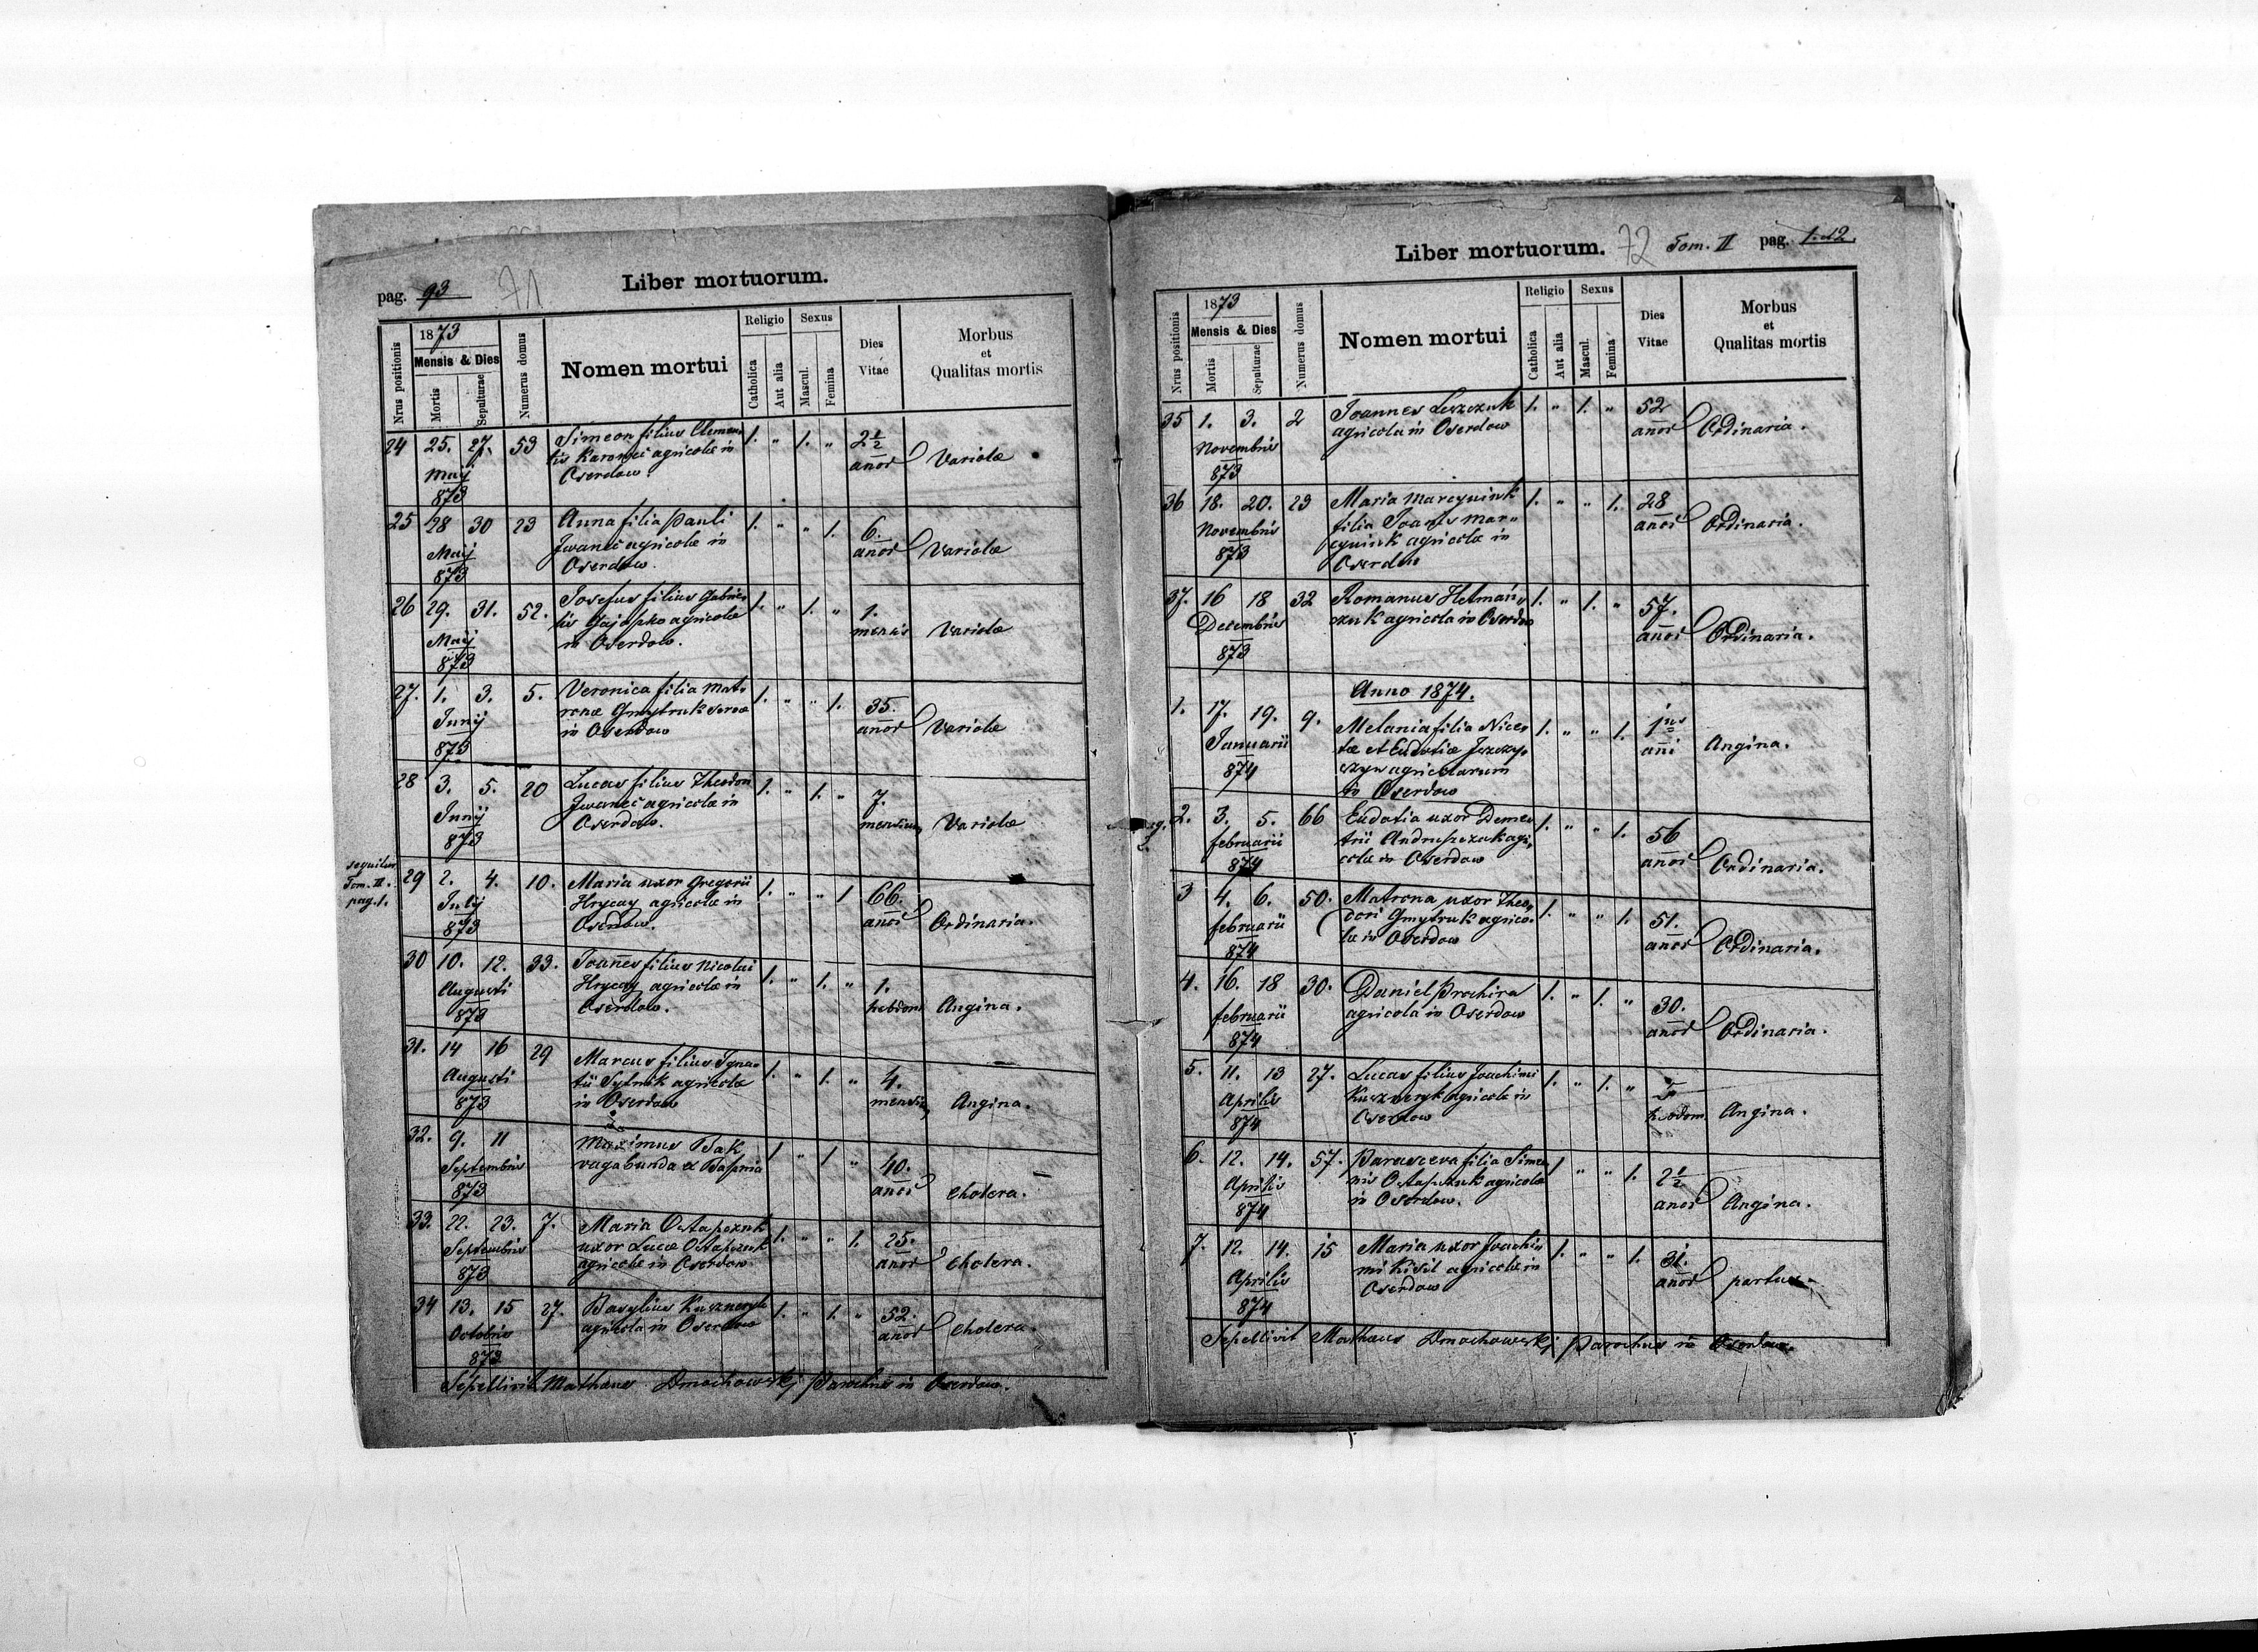 pag. 93 71 Liber mortuorum.
Nrus positionis
1873
Mensis & Dies
Mortis
Sepulturae
Numerus domus
Nomen mortui
Religio
Catholica
Aut alia
Sexus
Mascul.
Femina
Dies
Vitae
Morbus
et
Qualitas mortis
24 25. 27. 53 Simeon filius Clemen- 1. " 1. " 2 1/2
tis Karonec agricolæ in anor Variolæ
Maij Oserdow.
873
25 28 30 23 Anna filia Pauli 1. " " 1. 6.
Maij Iwanec agricolæ in anor Variolæ
873 Oserdow.
26 29. 31. 52. Josefus filius Gabrie- 1. " 1. " 1.
Maij lis agricolæ mensis Variolæ
873 in Oserdow.
27. 1. 3. 5. Veronica filia Mat- 1. " " 1. 35.
Junij ronæ Gmytruk in anor Variolæ
873 in Oserdow
28 3. 5. 20 Lucas filius Theodori 1. " 1. " 7.
Junij Iwanec agricolæ in mensium Variolæ
873 Oserdow.
sequitur
Tom. II.
pag. 1.
29 2. 4. 10. Maria uxor Gregorii 1. " " 1 66.
Julij Hrycay agricolæ in anor Ordinaria.
873 Oserdow.
30 10. 12. 33. Joannes filius Nicolai 1. " 1. " 1.
Augusti Hrycay agricolæ in hebdom Angina.
873 Oserdow.
31. 14 16 29 Marcus filius Igna- 1. " 1. " 4.
Augusti tii Sytnik agricolæ mensium Angina.
873 in Oserdow
32. 9. 11 Maximus Bak 1 " 1 " 40.
Septembris vagabunda ex anor Cholera.
873
33. 22. 23. 7. Maria Ostapczuk 1. " " 1. 25.
Septembris uxor Lucæ Ostapczuk anor Cholera.
873 agricolæ in Oserdow
34 13. 15 27. Basylius Kuszneryk 1. " 1. " 52.
Octobris agricola in Oserdow anor Cholera.
873
Sepellivit Mathæus Dmochowskj Parochus in Oserdow.
Liber mortuorum. 72 Tom. II pag. 1. et 2.
Nrus positionis
1873
Mensis & Dies
Mortis
Sepulturae
Numerus domus
Nomen mortui
Religio
Catholica
Aut alia
Sexus
Mascul.
Femina
Dies
Vitae
Morbus
et
Qualitas mortis
35 1. 3. 2 Joannes Leszczuk 1. " 1. " 52
Novembris agricola in Oserdow anor Ordinaria.
873
36 18. 20. 23 Maria Marcyniuk 1. " " 1. 28
Novembris filia Joanis Mar- anor Ordinaria.
873 cyniuk agricolæ in
Oserdow
37. 16 18 32 Romanus Hetmań- 1. " 1. " 57.
Decembris czuk agricola in Oserdow anor Ordinaria.
873
Anno 1874.
1. 17. 19. 9. Melania filia Nice- 1. " " 1. 1
Januarii tæ et Eudoxiæ ani Angina.
874 agricolarum
in Oserdow
2. 3. 5. 66 Eudoxia uxor Deme- 1. " " 1. 56
februarii trii Andrupczuk agri- anor Ordinaria.
874 colæ in Oserdow
3 4. 6. 50. Matrona uxor Theo- 1. " " 1. 51.
februarii dori Gmytruk agrico- anor Ordinaria.
874 læ in Oserdow
4. 16. 18 30. Daniel Prochira 1. " 1. " 30.
februarii agricola in Oserdow anor Ordinaria.
874
5. 11. 13 27. Lucas filius Joachimi 1. " 1. "
Aprilis Kuszneryk agricolæ in hebdom Angina.
874 Oserdow
6. 12. 14. 57. Parasceva filia Simeo- 1 " " 1. 2 1/2
Aprilis nis Ostapczuk agricolæ anor Angina.
874 in Oserdow.
7. 12. 14. 15 Maria uxor Joachi- 1. " " 1. 31.
Aprilis mi Kisil agricolæ in anor partus
874 Oserdow
Sepellivit Mathæus Dmochowskj Parochus in Oserdow.